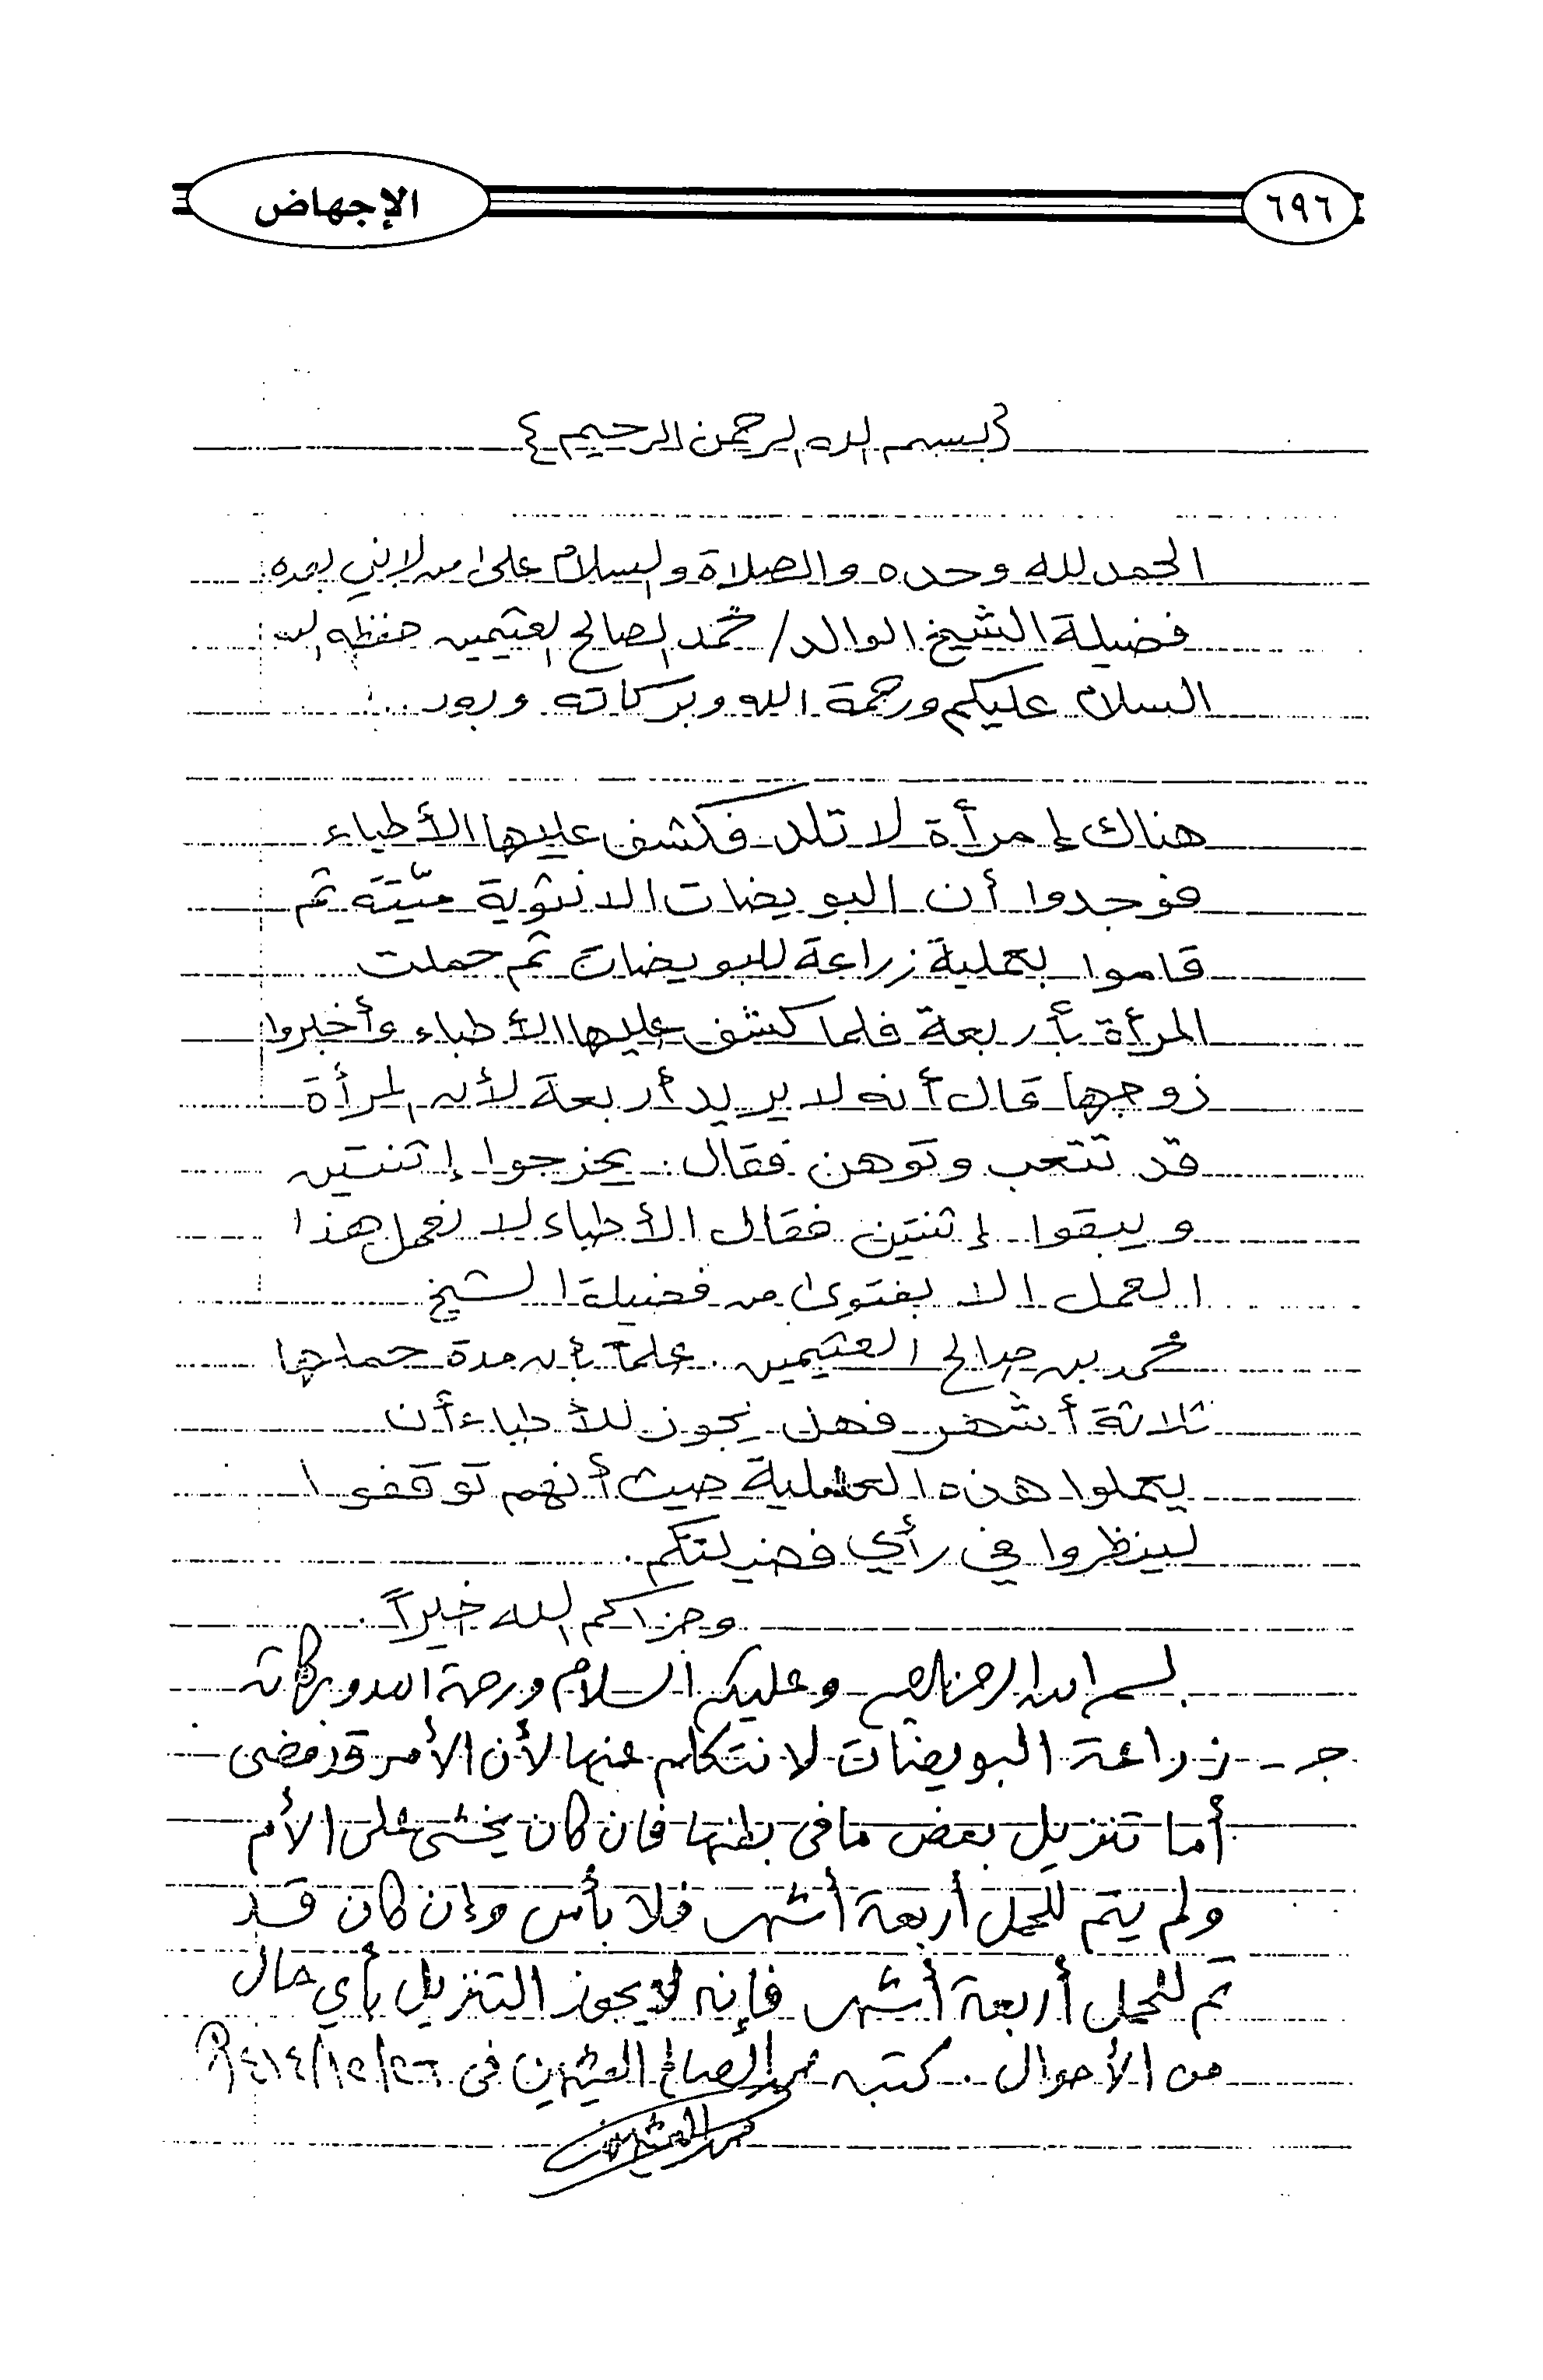 ٦٩٦
الإجهاض
بسم الله الرحمن الرحيم
الحمد لله وحده والصلاة والسلام على من لا نبي بعده
فضيلة الشيخ الوالد/ محمد الصالح العثيمين حفظه الله
السلام عليكم ورحمة الله وبركاته وبعد..
هناك إمرأة لا تلد فكشف عليها الأطباء
فوجدوا أن البويضات الانثوية ميّتة ثم
قاموا بعملية زراعة للبويضات ثم حملت
المرأة بأربعة فلما كشف عليها الأطباء وأخبروا
زوجها قال أنه لا يريد أربعة لأن المرأة
قد تتعب وتوهن فقال. يخرجوا إثنتين
ويبقوا إثنتين فقال الأطباء لا نعمل هذا
العمل الا بفتوى من فضيلة الشيخ
محمد بن صالح العثيمين. علماً بأن مدة حملها
ثلاثة أشهر فهل يجوز للأطباء أن
يعملوا هذه العملية حيث أنهم توقفوا
لينظروا في رأي فضيلتكم.
وجزاكم الله خيراً.
بسم الله الرحمن الرحيم وعليكم السلام ورحمة الله وبركاته
جـ - زراعة البويضات لا نتكلم عنها لأن الأمر قد مضى
أما تنزيل بعض ما في بطنها فإن كان يخشى على الأم
ولم يتم للحمل أربعة أشهر فلا بأس وإن كان قد
تم للحمل أربعة أشهر فإنه لا يجوز التنزيل بأي حال
من الأحوال. كتبه محمد الصالح العثيمين في ٢٦/١٢/١٤١٤هـ
محمد العثيمين